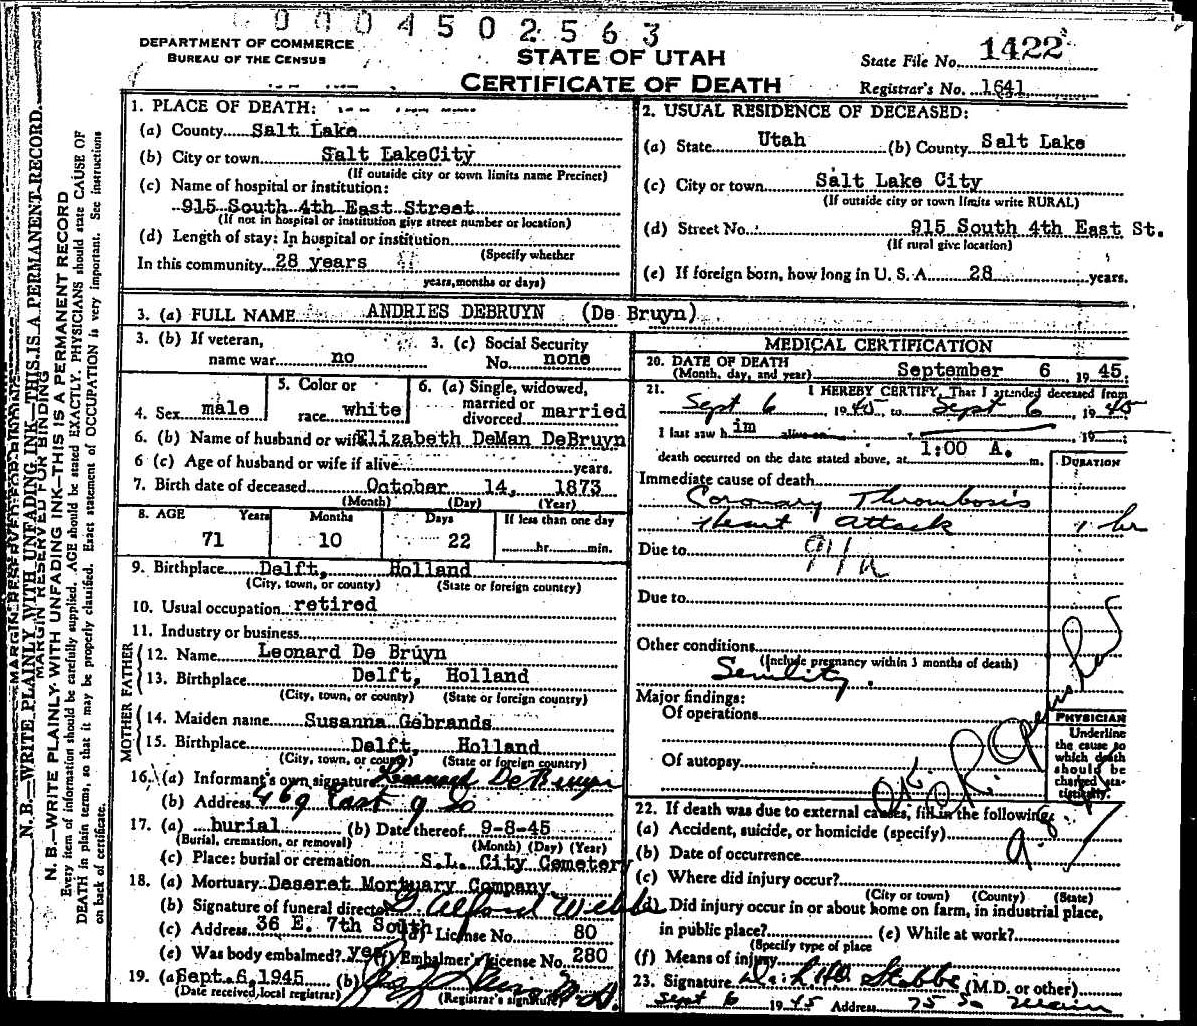 0004502563
DEPARTMENT OF COMMERCE
BUREAU OF THE CENSUS
STATE OF UTAH
CERTIFICATE OF DEATH
State File No. 1422
Registrar's No. 1641
MARGIN RESERVED FOR BINDING
N. B.—WRITE PLAINLY WITH UNFADING INK—THIS IS A PERMANENT RECORD
Every item of information should be carefully supplied. AGE should be stated EXACTLY. PHYSICIANS should state CAUSE OF
DEATH in plain terms, so that it may be properly classified. Exact statement of OCCUPATION is very important. See instructions
on back of certificate.
1. PLACE OF DEATH:
(a) County Salt Lake
(b) City or town Salt LakeCity
(If outside city or town limits name Precinct)
(c) Name of hospital or institution:
915 South 4th East Street
(If not in hospital or institution give street number or location)
(d) Length of stay: In hospital or institution
(Specify whether
In this community 28 years
years, months or days)
2. USUAL RESIDENCE OF DECEASED:
(a) State Utah (b) County Salt Lake
(c) City or town Salt Lake City
(If outside city or town limits write RURAL)
(d) Street No. 915 South 4th East St.
(If rural give location)
(e) If foreign born, how long in U. S. A. 28 years.
3. (a) FULL NAME ANDRIES DEBRUYN (De Bruyn)
3. (b) If veteran, name war no
3. (c) Social Security No. none
4. Sex male
5. Color or race white
6. (a) Single, widowed, married or divorced married
6. (b) Name of husband or wife Elizabeth DeMan DeBruyn
6 (c) Age of husband or wife if alive years.
7. Birth date of deceased October 14, 1873
(Month) (Day) (Year)
8. AGE Years Months Days If less than one day
71 10 22 hr. min.
9. Birthplace Delft, Holland
(City, town, or county) (State or foreign country)
10. Usual occupation retired
11. Industry or business
FATHER
12. Name Leonard De Bruyn
13. Birthplace Delft, Holland
(City, town, or county) (State or foreign country)
MOTHER
14. Maiden name Susanna Gebrands
15. Birthplace Delft, Holland
(City, town, or county) (State or foreign country)
16. (a) Informant's own signature Leonard DeBruyn
(b) Address 469 East 9 So
17. (a) burial (b) Date thereof 9-8-45
(Burial, cremation, or removal) (Month) (Day) (Year)
(c) Place: burial or cremation S.L. City Cemetery
18. (a) Mortuary Deseret Mortuary Company
(b) Signature of funeral director D Alford Webb
(c) Address 36 E. 7th South (d) License No. 80
(e) Was body embalmed? yes (f) Embalmer's License No. 280
19. (a) Sept. 6, 1945 (b)
(Date received, local registrar) (Registrar's signature)
MEDICAL CERTIFICATION
20. DATE OF DEATH
(Month, day, and year) September 6 1945.
21. I HEREBY CERTIFY, That I attended deceased from
Sept 6, 1945 to Sept 6, 1945
I last saw him alive on , 19
death occurred on the date stated above, at 1:00 A. m.
DURATION
Immediate cause of death
Coronary Thrombosis
Heart attack 1 hr
Due to
Due to
Other conditions
(Include pregnancy within 3 months of death)
Senility.
Major findings:
Of operations
Of autopsy
PHYSICIAN
Underline
the cause to
which death
should be
charged sta-
tistically.
O.K.
22. If death was due to external causes, fill in the following:
(a) Accident, suicide, or homicide (specify)
(b) Date of occurrence
(c) Where did injury occur?
(City or town) (County) (State)
(d) Did injury occur in or about home on farm, in industrial place,
in public place? (e) While at work?
(Specify type of place
(f) Means of injury
23. Signature (M.D. or other)
Sept 6 1945 Address 75 So Main